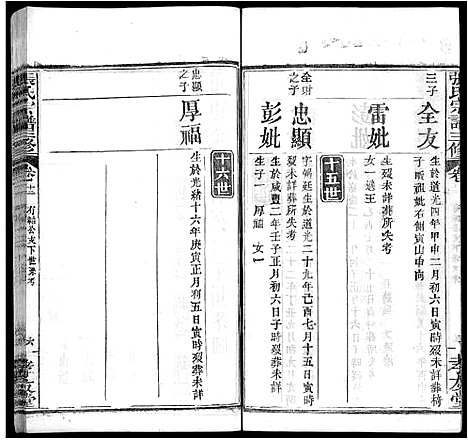 張氏宗譜三修
三子
全友
生於道光四年甲申二月初六日寅時歿
子時祖妣右側寅山申向
雷妣
生歿未詳葬所失考
女一適王
十五世
全財之子
忠顯
字錫廷生於道光二十九年己酉七月十五日寅時
歿葬未詳葬所失考
彭妣
生於咸豐二年壬子正月初六日子時歿葬未詳
生子一厚福 女一
十六世
忠顯之子
厚福
生於光緒十六年庚寅正月初五日寅時歿葬未詳
張氏宗譜三修
卷
有
公支下世系考
六
孝友堂